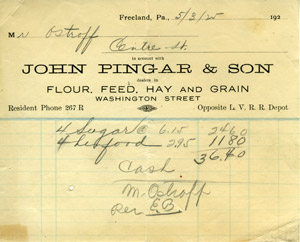 Freeland, Pa., 5/3/25 192
M N Ostroff
Centre St.
in account with
JOHN PINGAR & SON
dealers in
FLOUR, FEED, HAY AND GRAIN
WASHINGTON STREET
Resident Phone 267 R Opposite L. V. R. R. Depot
4 Sugar @ 6.15 24 60
4 2.95 11 80
36.40
Cash
M. Ostroff
Per EB